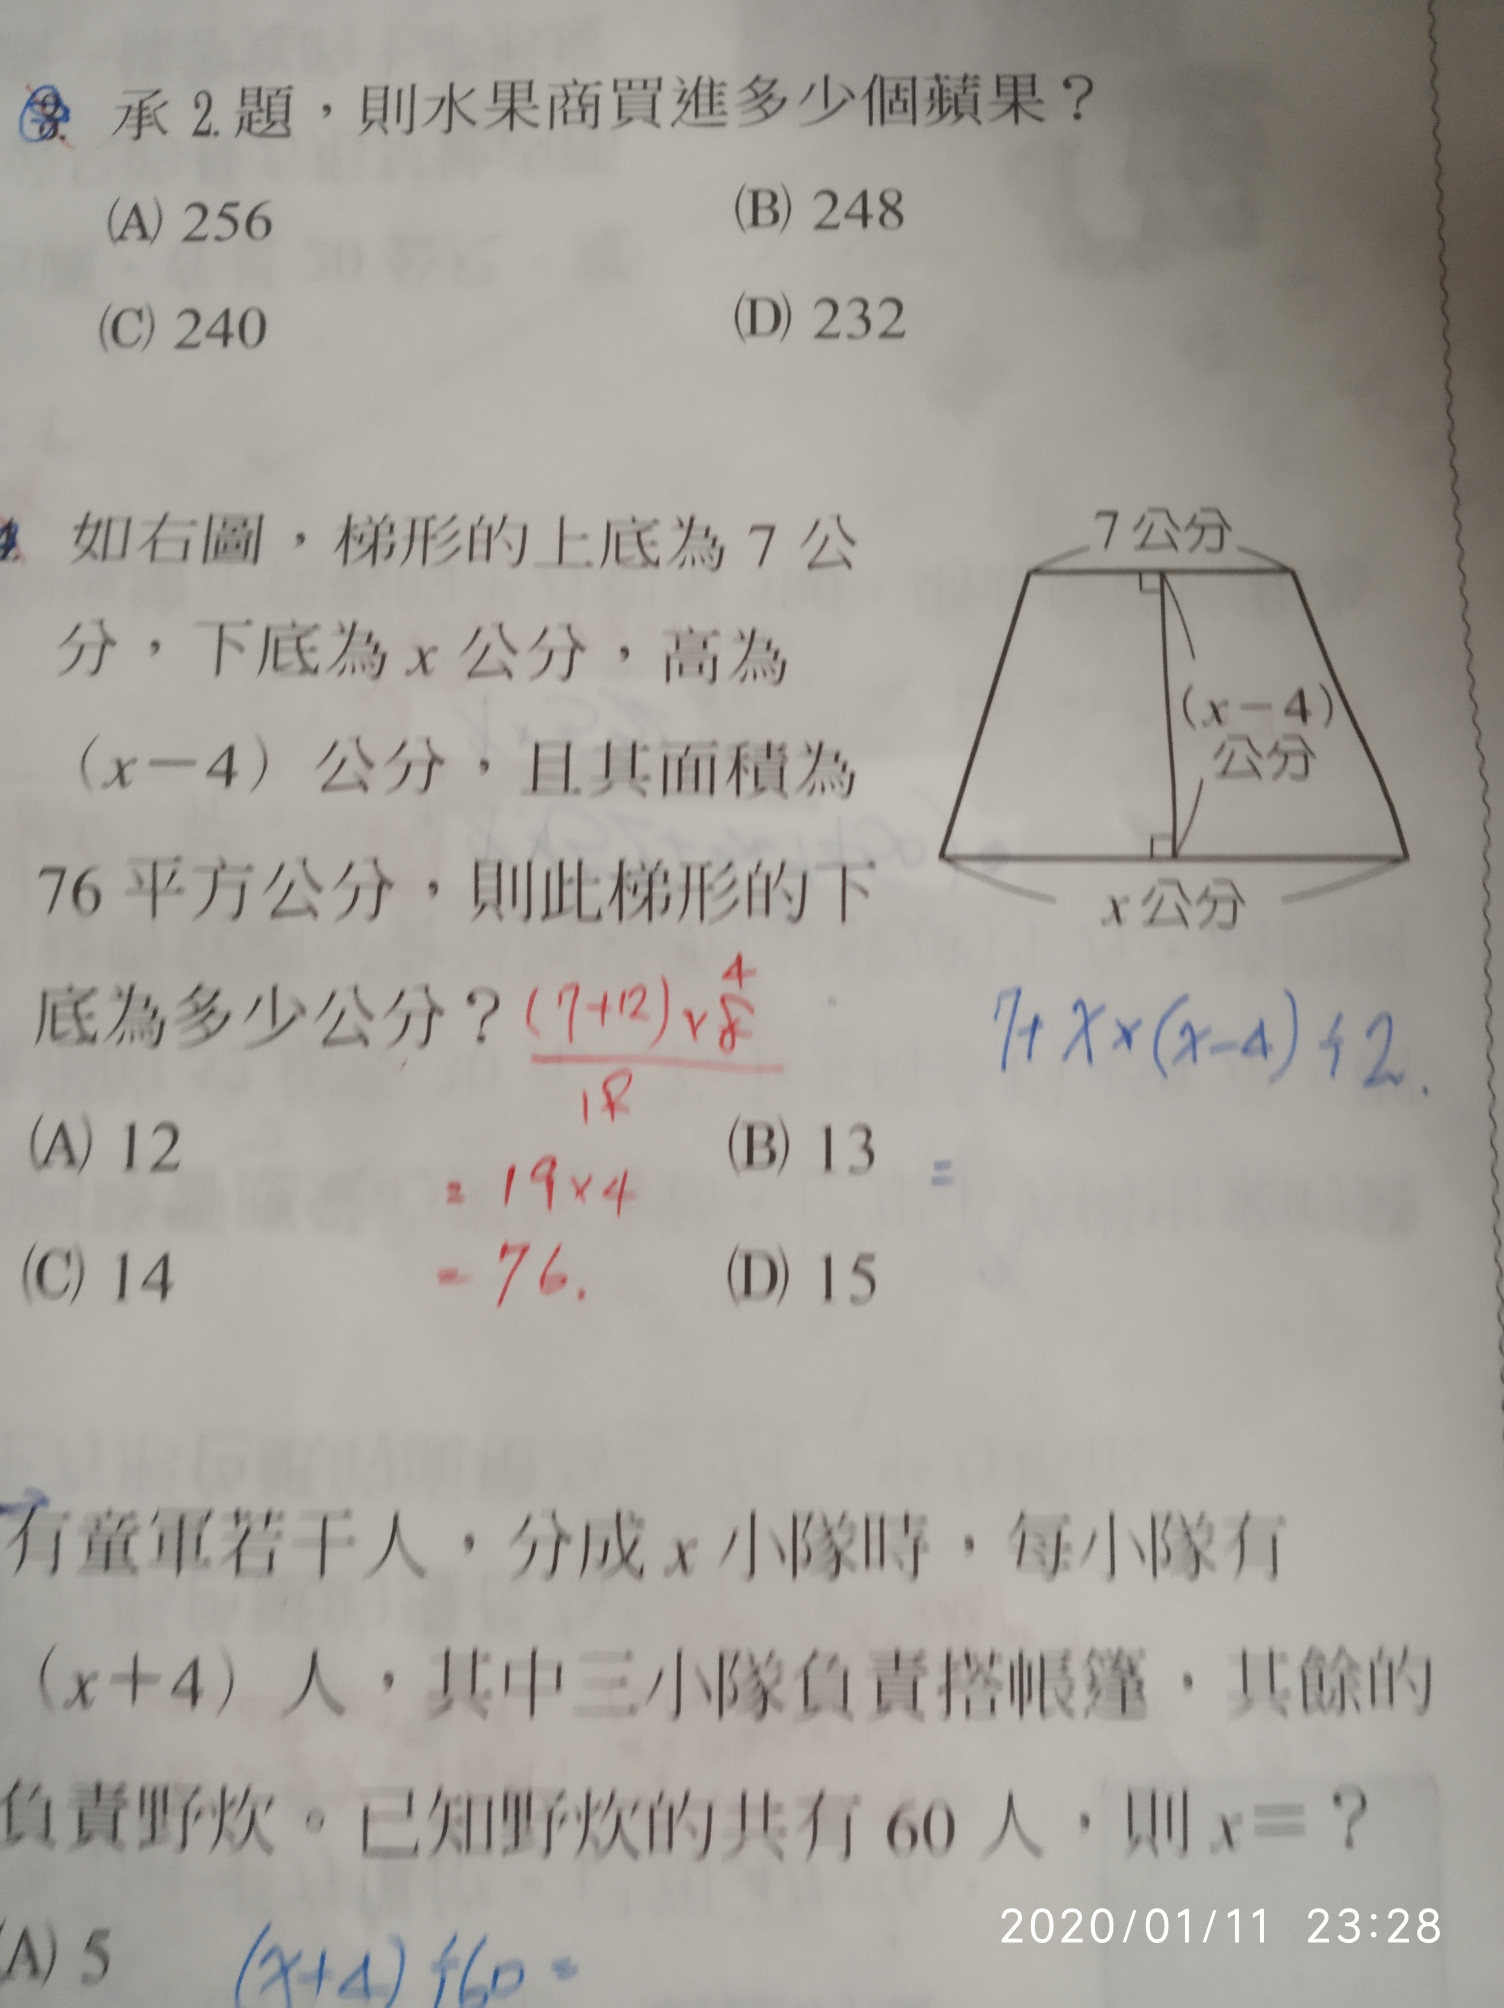 3. 承 2. 題，則水果商買進多少個蘋果？
(A) 256
(B) 248
(C) 240
(D) 232
4. 如右圖，梯形的上底為 7 公
分，下底為 x 公分，高為
（x－4）公分，且其面積為
76 平方公分，則此梯形的下
底為多少公分？
7 公分
(x－4)
公分
x 公分
(7+12)×8
4
7+x×(x-4)÷2.
(A) 12
(B) 13
=
= 19×4
(C) 14
= 76.
(D) 15
有童軍若干人，分成 x 小隊時，每小隊有
（x＋4）人，其中三小隊負責搭帳篷，其餘的
負責野炊。已知野炊的共有 60 人，則 x＝？
(A) 5
(x+4)÷60=
2020/01/11 23:28